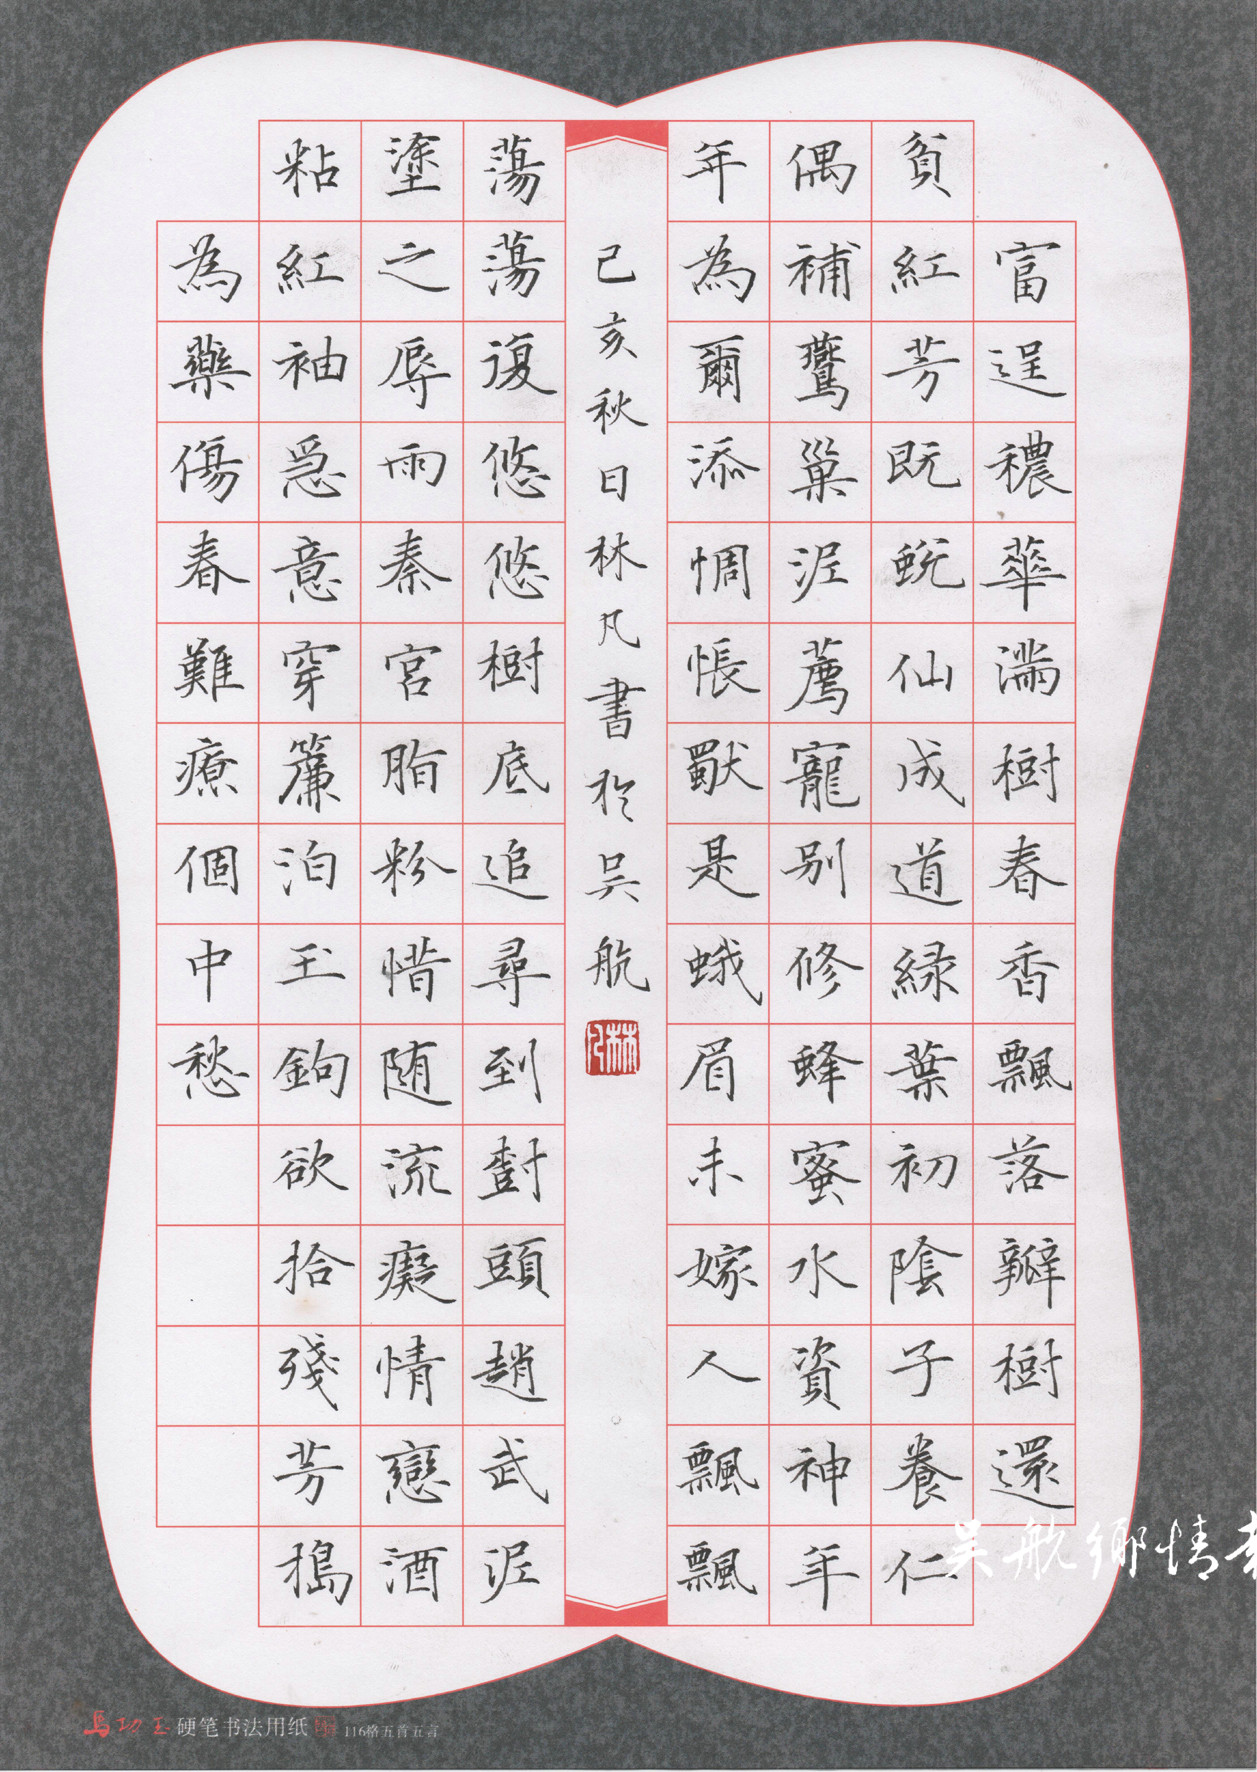 富逞穠華滿樹春香飄落瓣樹還
貧紅芳既蛻仙成道綠葉初陰子養仁
偶補鶯巢泥薦寵別修蜂蜜水資神年
年為爾添惆悵獸是蛾眉未嫁人飄飄
己亥秋日林凡書於吳航
蕩蕩復悠悠樹底追尋到對頭趙武泥
塗之辱雨秦宮脂粉惜隨流癡情戀酒
粘紅袖急意穿簾泊玉鉤欲拾殘芳搗
為藥傷春難療個中愁
林凡
吳航鄉情
硬笔书法用纸
116格五首五言